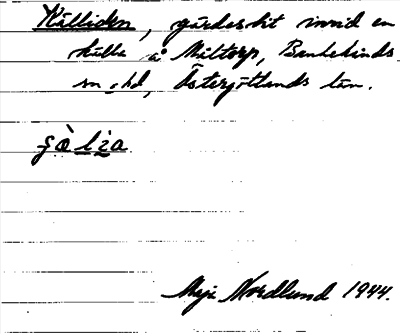 Källiden, gärdeskit invid en
källa å Miltorp, Bankekinds
sn o hd, Östergötlands län.
Maja Nordlund 1944.